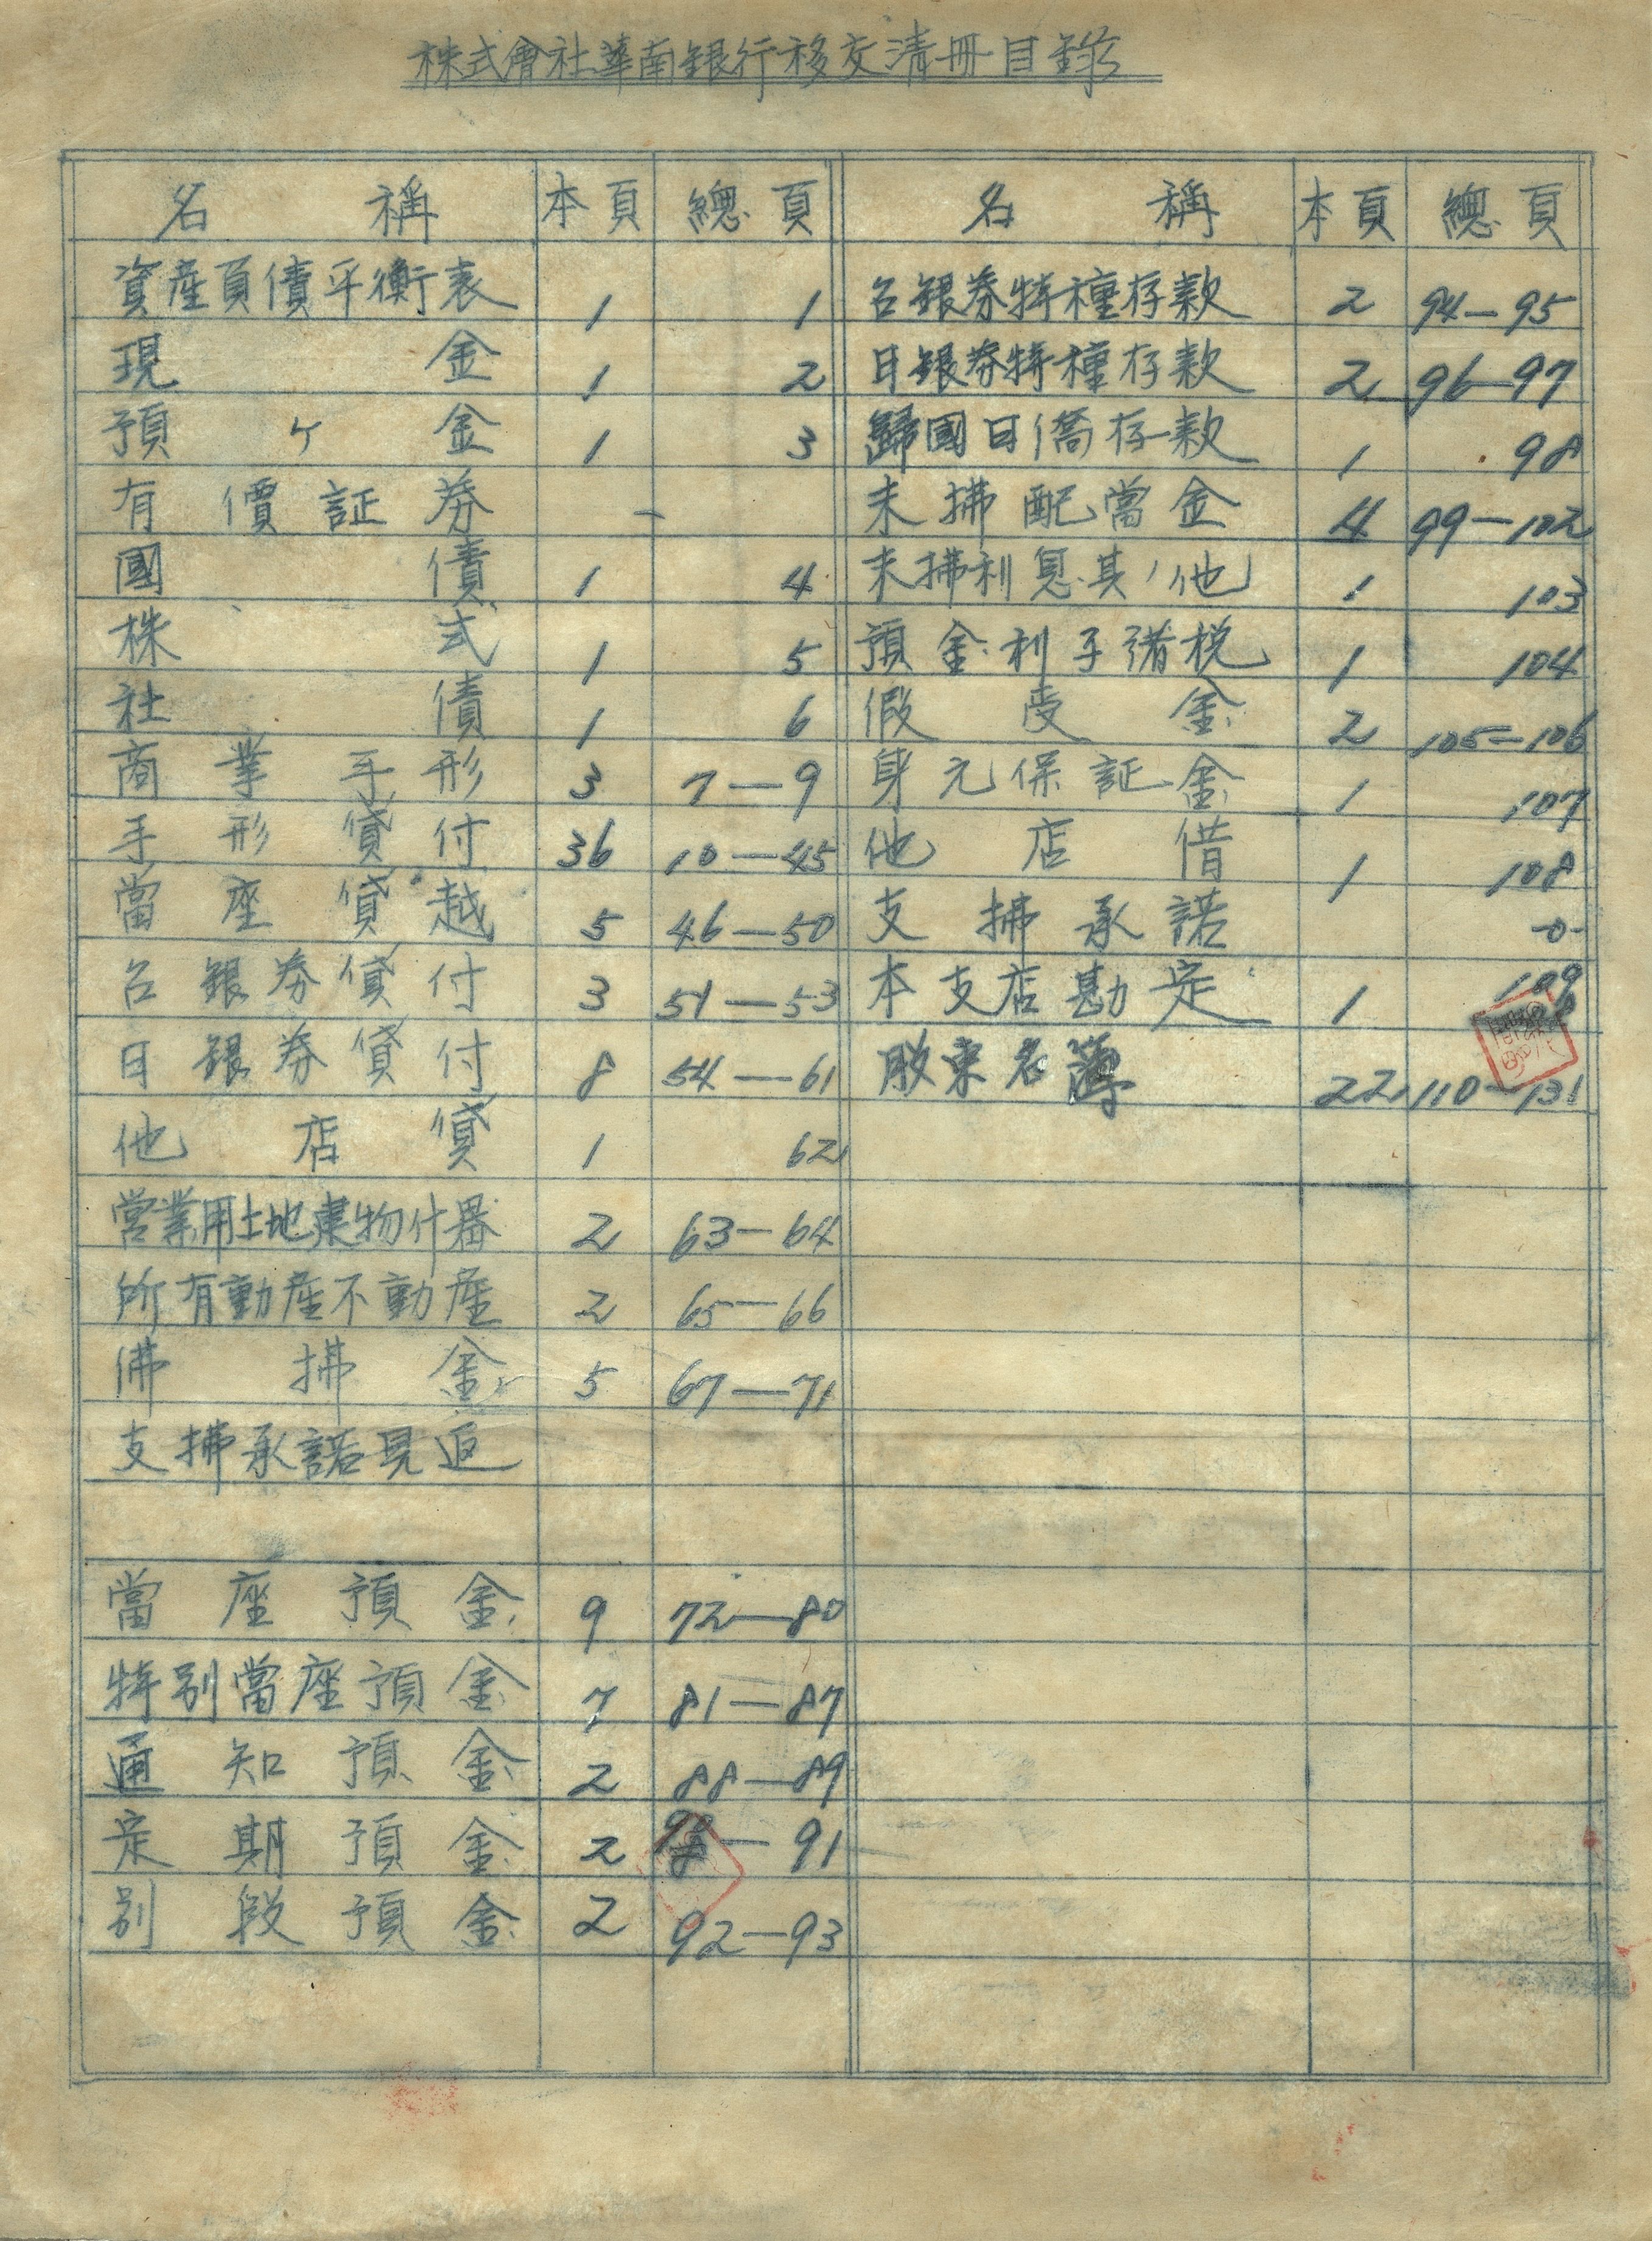 株式會社華南銀行移交清冊目錄
名稱 本頁 總頁 名稱 本頁 總頁
資產負債平衡表 1 1
現金 1 2
預ヶ金 1 3
有價証券 -
國債 1 4
株式 1 5
社債 1 6
商業手形 3 7—9
手形貸付 36 10—45
當座貸越 5 46—50
台銀券貸付 3 51—53
日銀券貸付 8 54—61
他店貸 1 62
営業用土地建物什器 2 63—64
所有動產不動產 2 65—66
拂金 5 67—71
支拂承諾見返
當座預金 9 72—80
特別當座預金 7 81—87
通知預金 2 88—89
定期預金 2 90—91
別段預金 2 92—93
台銀券特種存款 2 94—95
日銀券特種存款 2 96—97
歸國日僑存款 1 98
未拂配當金 4 99—102
未拂利息其ノ他 1 103
預金利子諸税 1 104
假受金 2 105—106
身元保証金 1 107
他店借 1 108
支拂承諾 -0-
本支店勘定 1 109
股東名簿 22 110—131